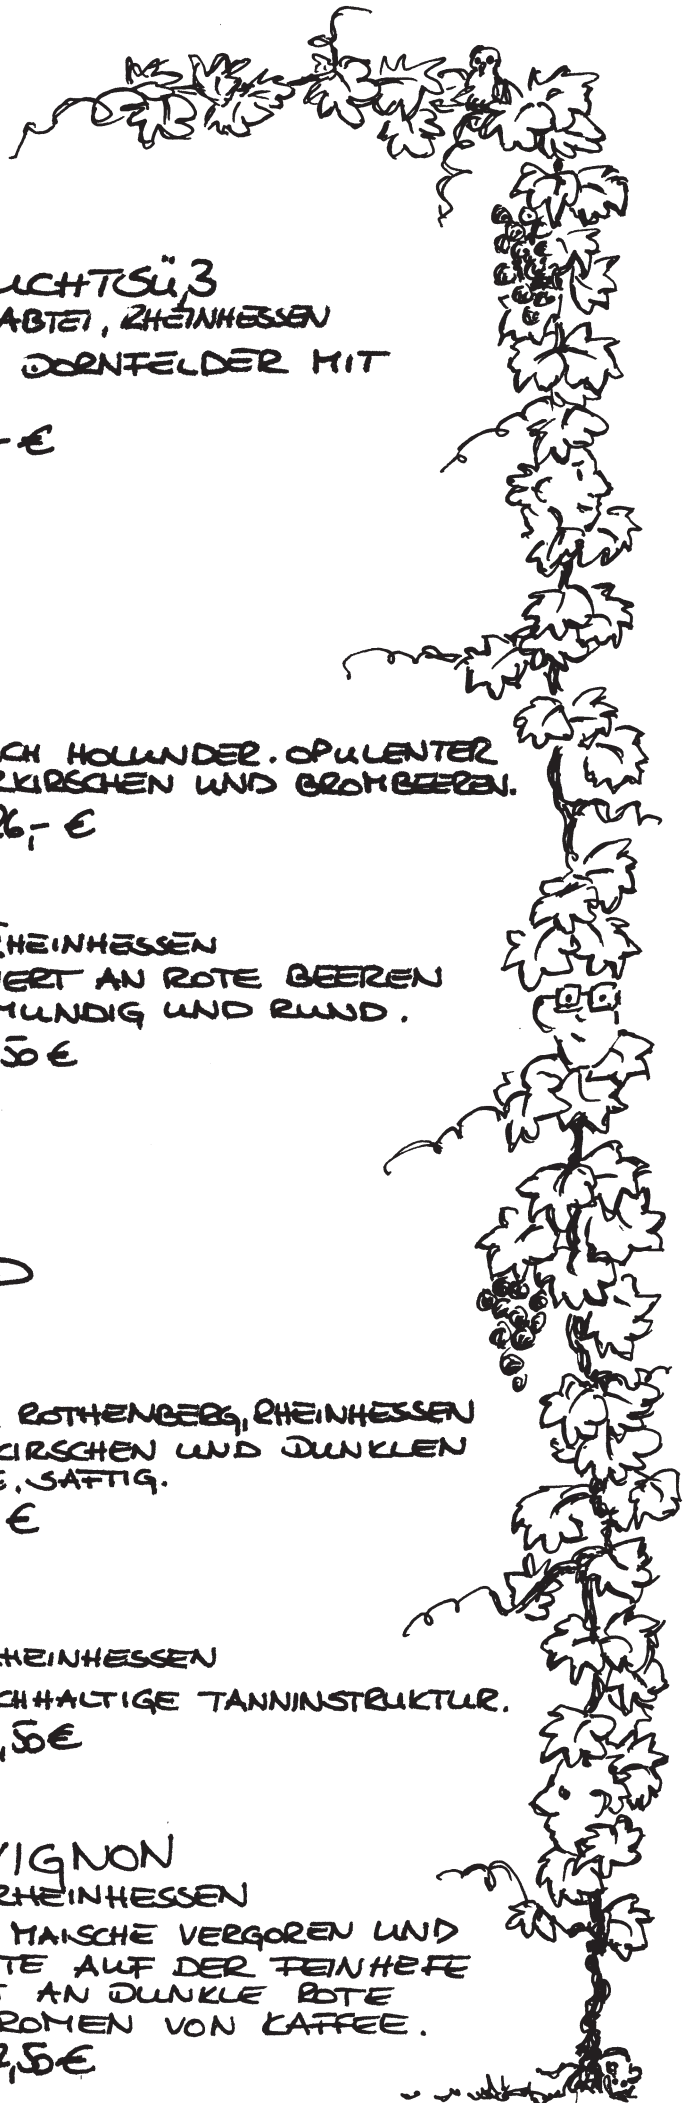 UCHTSÜß
ABTEI, RHEINHESSEN
DORNFELDER MIT
- €
CH HOLUNDER. OPULENTER
RKIRSCHEN UND BROMBEEREN.
26,- €
RHEINHESSEN
IERT AN ROTE BEEREN
MUNDIG UND RUND.
,50 €
ROTHENBERG, RHEINHESSEN
KIRSCHEN UND DUNKLEN
E, SAFTIG.
€
HEINHESSEN
CHHALTIGE TANNINSTRUKTUR.
,50 €
VIGNON
RHEINHESSEN
MAISCHE VERGOREN UND
TE AUF DER FEINHEFE
T AN DUNKLE ROTE
ROMEN VON KAFFEE.
2,50 €